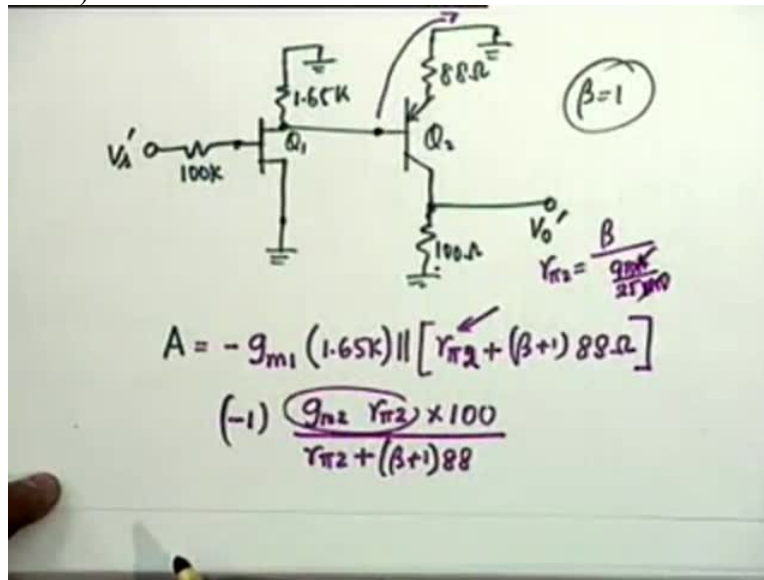 1.65K
88Ω
β=1
Vs'
100K
Q1
Q2
Vo'
100Ω
rπ2 = β /
A = - gm1 (1.65K) || [ rπ2 + (β+1) 88Ω ]
(-1) gm2 rπ2 × 100
rπ2 + (β+1) 88